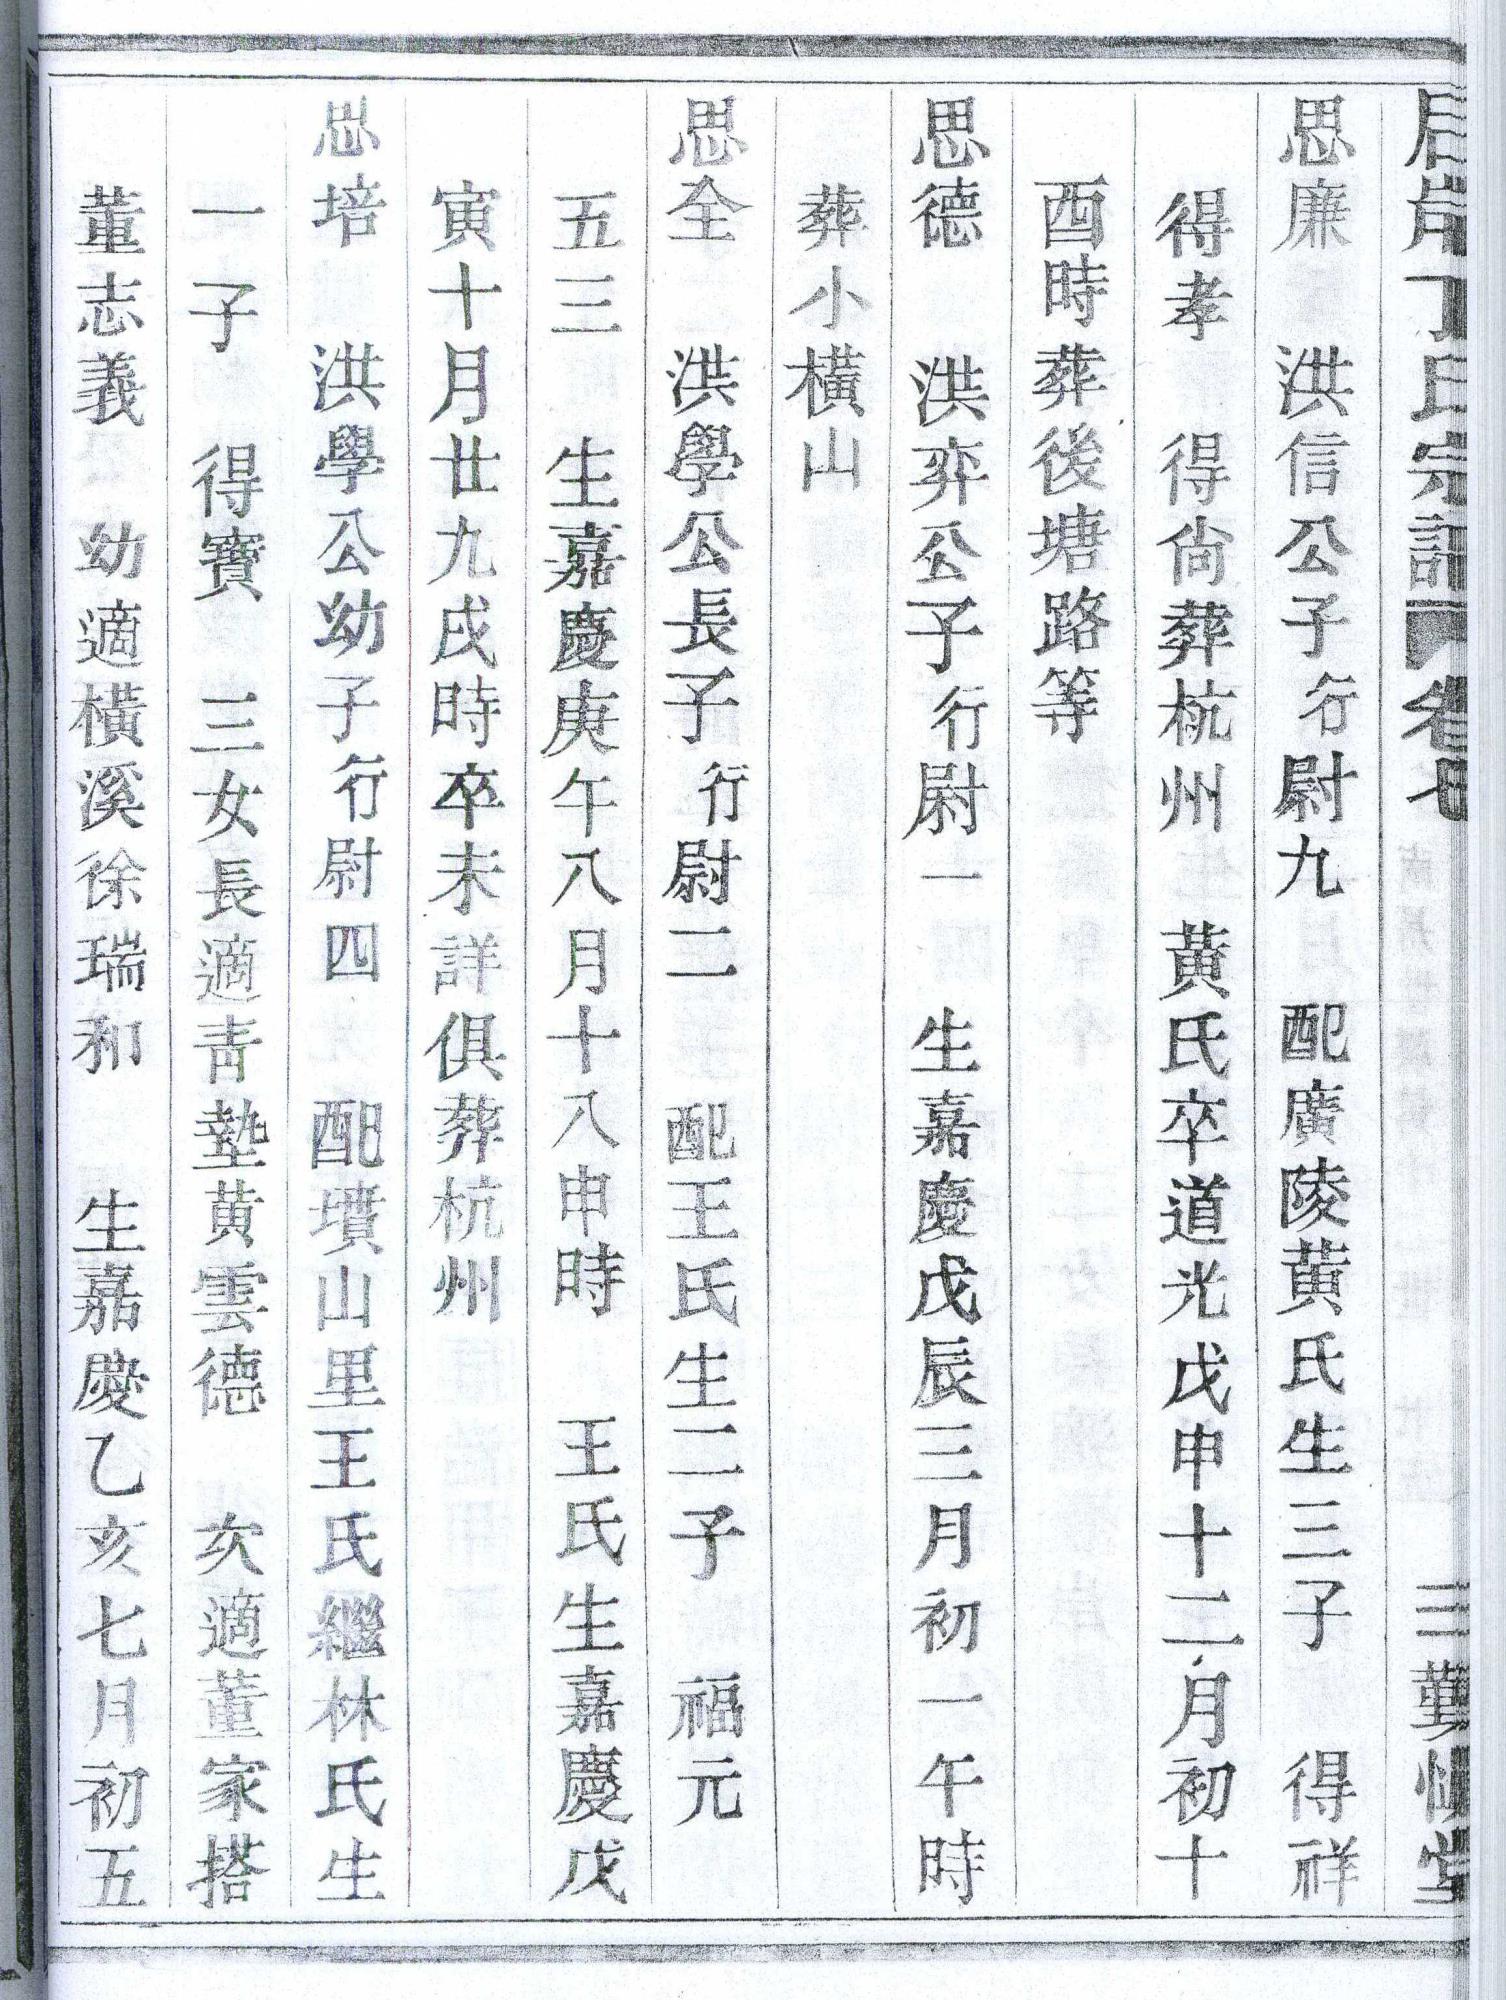 丁氏宗譜 卷七 三 勤慎堂
思廉 洪信公子行尉九 配廣陵黃氏生三子 得祥
得孝 得尙葬杭州 黃氏卒道光戊申十二月初十
酉時葬後塘路等
思德 洪弈公子行尉一 生嘉慶戊辰三月初一午時
葬小橫山
思全 洪學公長子行尉二 配王氏生二子 福元
五三 生嘉慶庚午八月十八申時 王氏生嘉慶戊
寅十月廿九戌時卒未詳俱葬杭州
思培 洪學公幼子行尉四 配墳山里王氏繼林氏生
一子 得寶 三女長適靑墊黃雲德 次適董家搭
董志義 幼適橫溪徐瑞和 生嘉慶乙亥七月初五